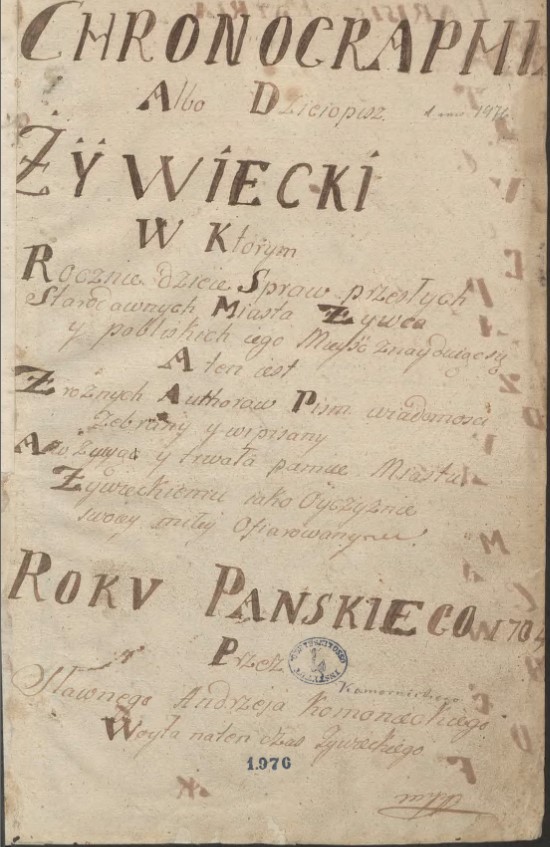 CHRONOGRAPHI
Albo Dzieiopisz
1974
ŻŸWIECKI
W Ktorym
Rocznie dzieie Spraw przeszłych
Starodawnych Miasta Zywca
y pobliskich iego Mieysc znayduią się
A ten iest
Z roznych Authorow Pism wiadomosci
Zebrany y wipisany
y trwała pamięc Miastu
Zywieckiemu iako Oyczyznie
swoiey miłey Ofiarowany
ROKV PANSKIEGO 1704
Przez
Kamonieckiego
Sławnego Andrzeja Komonieckiego
Woyta na ten czas Zywieckiego
1.976